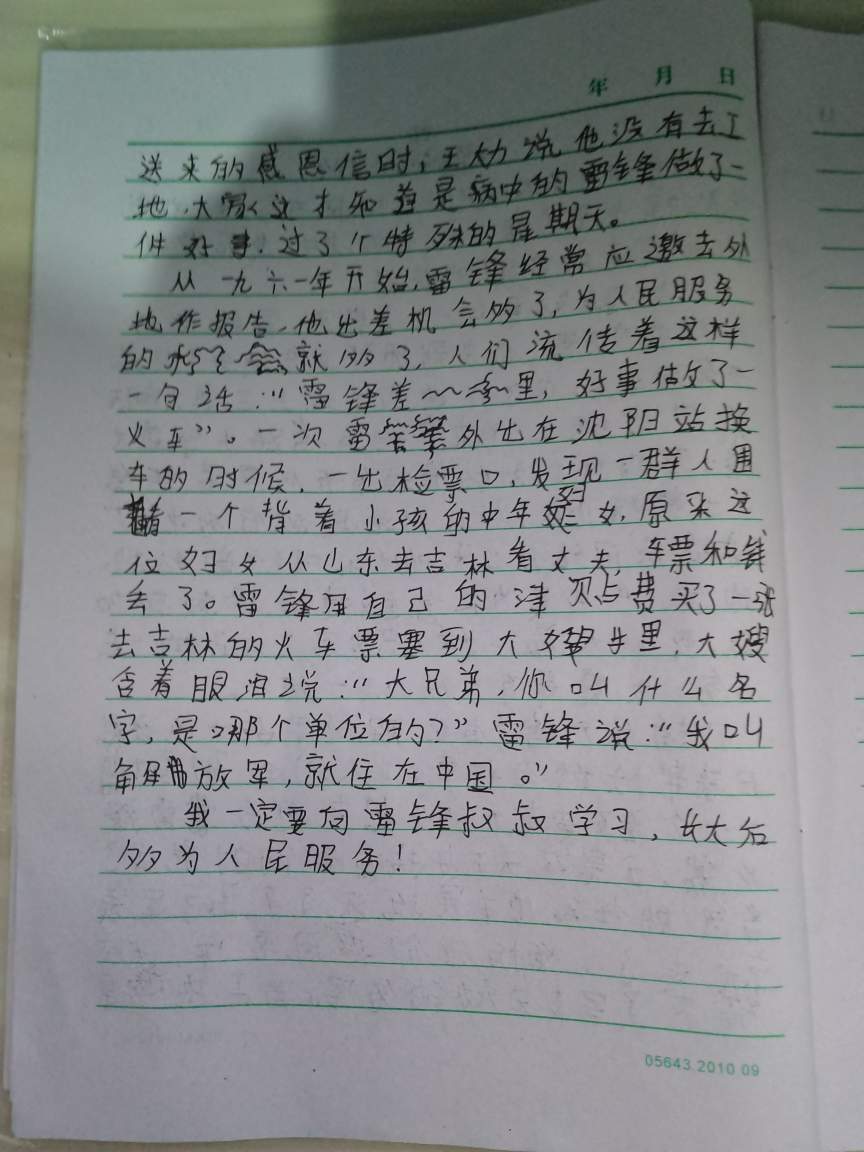 年 月 日
送来的感恩信时，王大力说他没有去工
地，大家这才知道是病中的雷锋做了一
件好事，过了个特殊的星期天。
从一九六一年开始，雷锋经常应邀去外
地作报告，他出差机会多了，为人民服务
的就多了，人们流传着这样
一句话：“雷锋差里，好事做了一
火车”。一次雷外出在沈阳站换
车的时候，一出检票口，发现一群人围
着一个背着小孩的中年妇女，原来这
位妇女从山东去吉林看丈夫，车票和钱
丢了。雷锋用自己的津贴费买了一张
去吉林的火车票塞到大嫂手里，大嫂
含着眼泪说：“大兄弟，你叫什么名
字，是哪个单位的？”雷锋说：“我叫
解放军，就住在中国。”
我一定要向雷锋叔叔学习，长大后
多为人民服务！
05643.2010.09